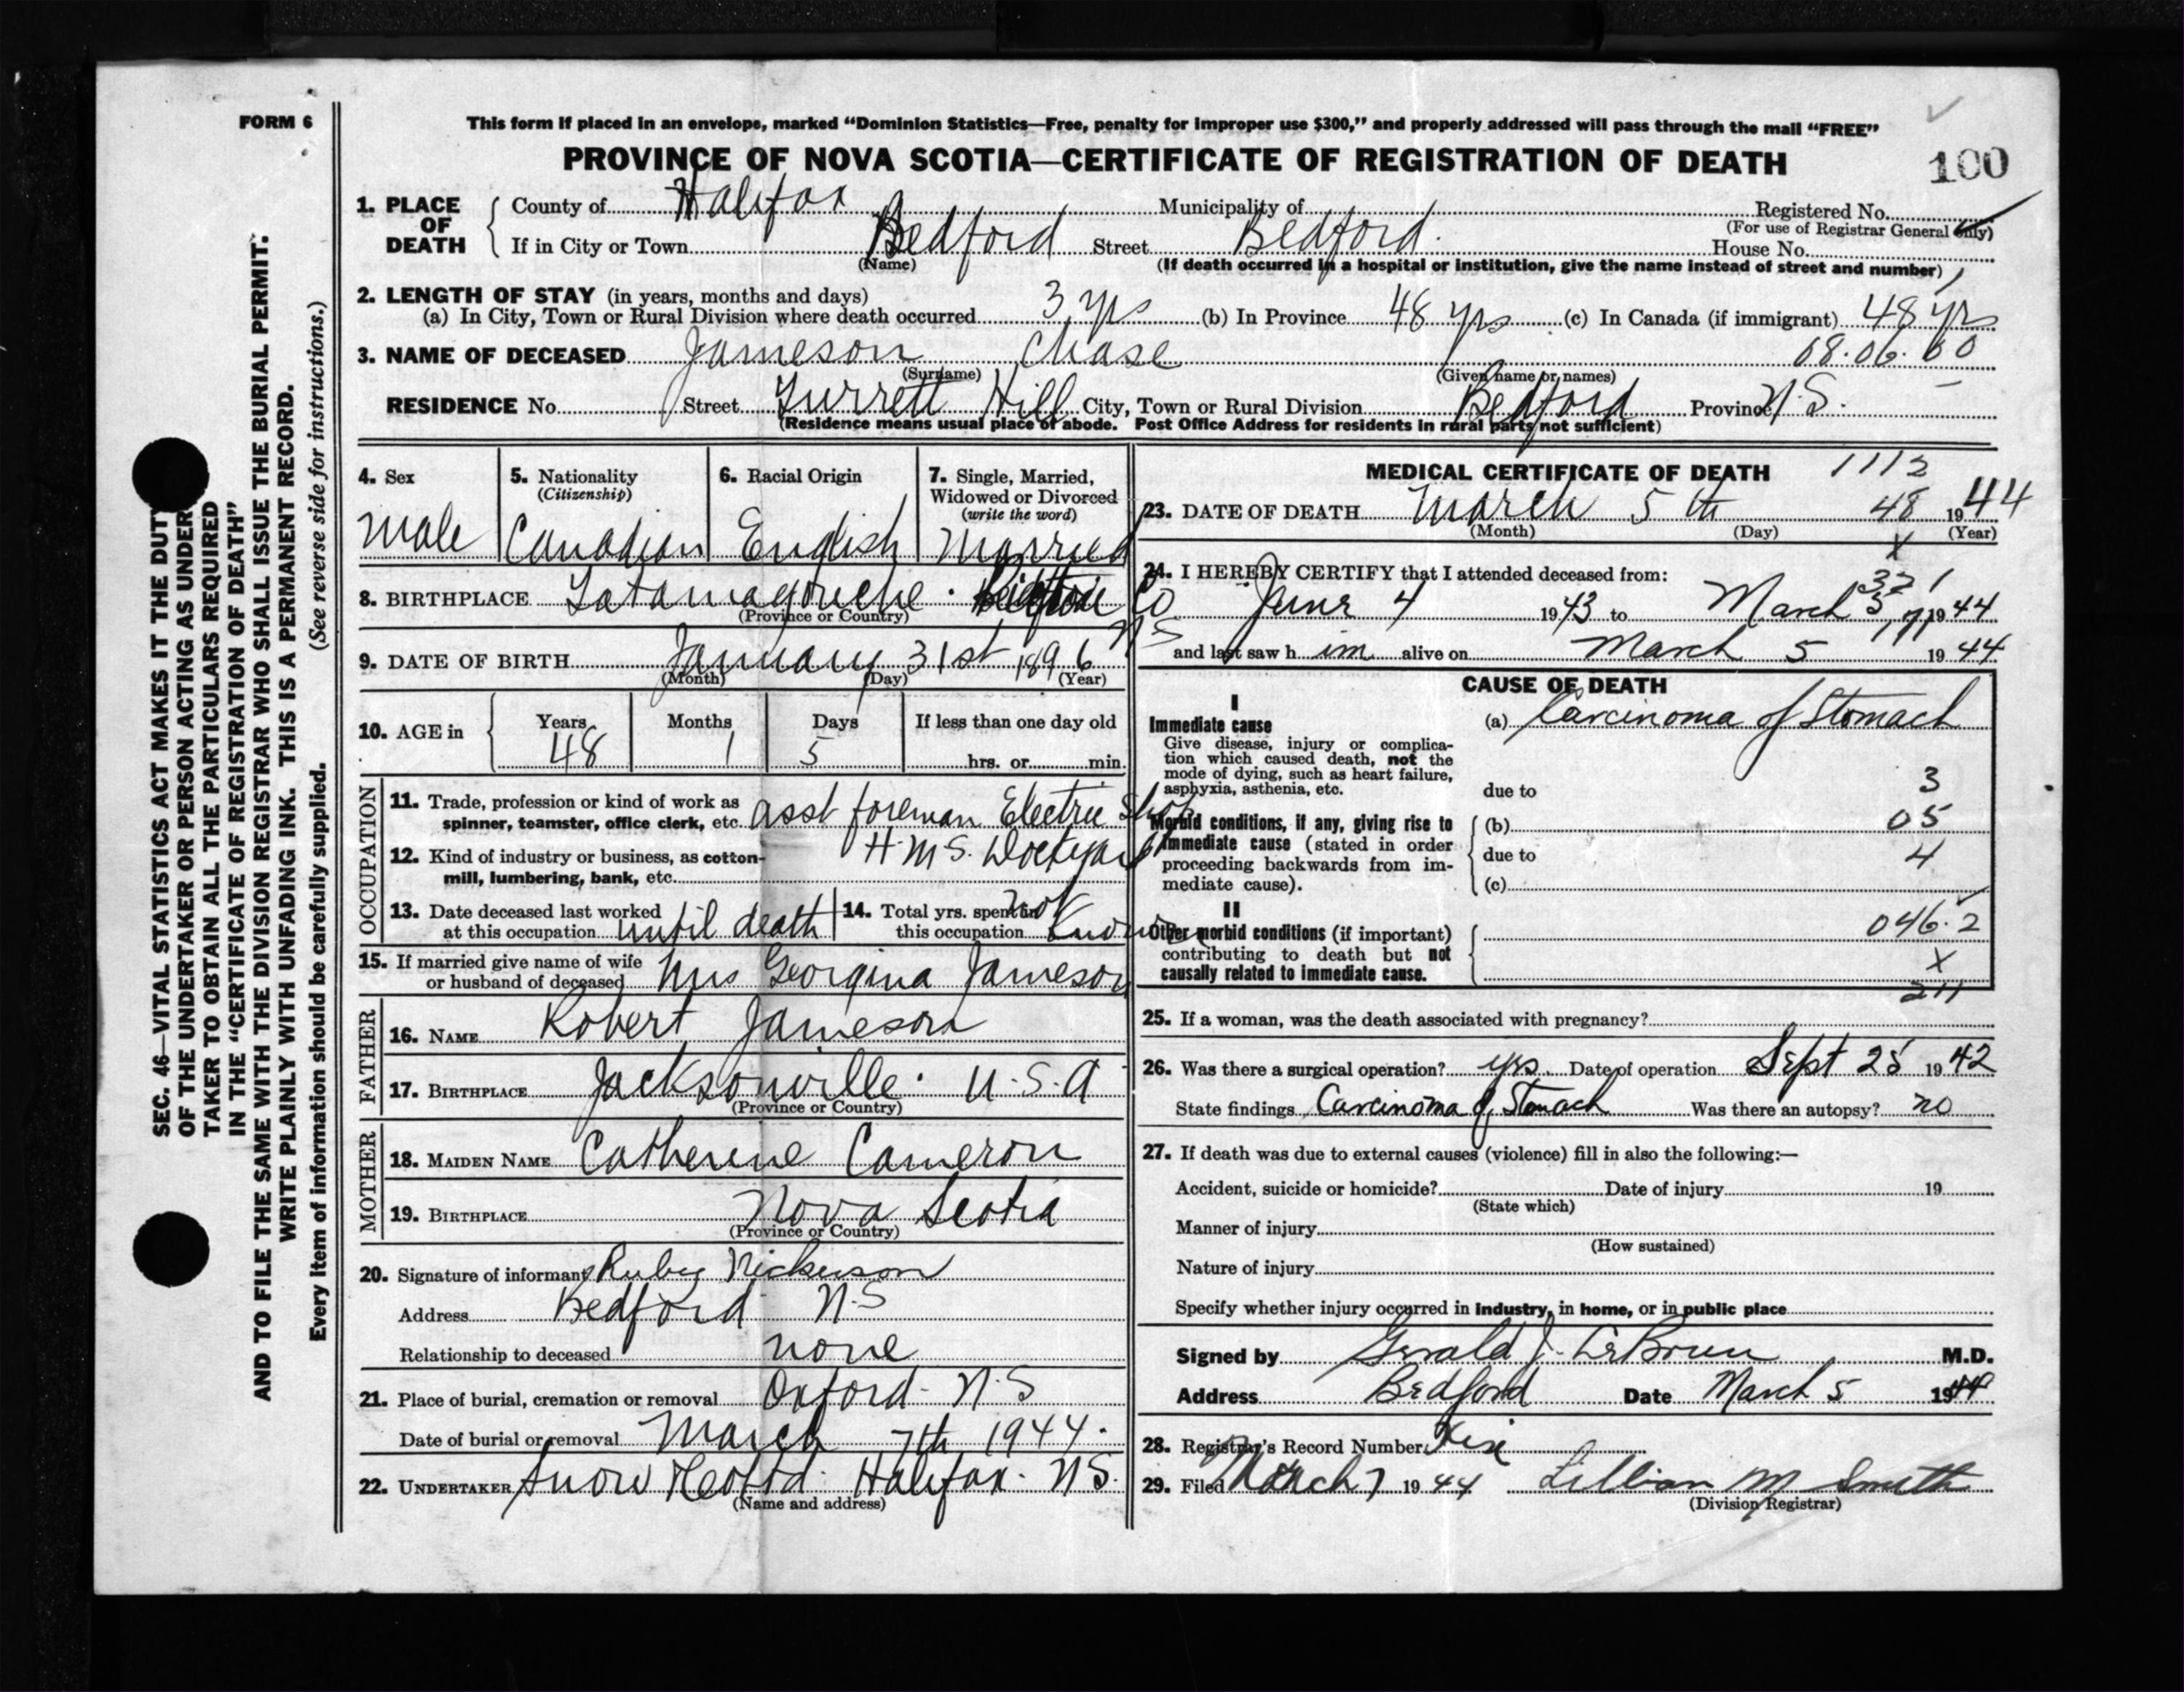 FORM 6
SEC. 46—VITAL STATISTICS ACT MAKES IT THE DUTY
OF THE UNDERTAKER OR PERSON ACTING AS UNDER-
TAKER TO OBTAIN ALL THE PARTICULARS REQUIRED
IN THE "CERTIFICATE OF REGISTRATION OF DEATH"
AND TO FILE THE SAME WITH THE DIVISION REGISTRAR WHO SHALL ISSUE THE BURIAL PERMIT.
WRITE PLAINLY WITH UNFADING INK. THIS IS A PERMANENT RECORD.
Every item of information should be carefully supplied. (See reverse side for instructions.)
This form if placed in an envelope, marked "Dominion Statistics—Free, penalty for improper use $300," and properly addressed will pass through the mail "FREE"
PROVINCE OF NOVA SCOTIA—CERTIFICATE OF REGISTRATION OF DEATH 100
1. PLACE OF DEATH County of Halifax Municipality of Registered No.
(For use of Registrar General only)
If in City or Town Bedford Street Bedford. House No.
(Name) (If death occurred in a hospital or institution, give the name instead of street and number)
2. LENGTH OF STAY (in years, months and days)
(a) In City, Town or Rural Division where death occurred 3 yrs (b) In Province 48 yrs (c) In Canada (if immigrant) 48 yrs
3. NAME OF DECEASED Jameson Chase 08.06.00
(Surname) (Given name or names)
RESIDENCE No. Street Hill City, Town or Rural Division Bedford Province N.S.
(Residence means usual place of abode. Post Office Address for residents in rural parts not sufficient)
4. Sex 5. Nationality (Citizenship) 6. Racial Origin 7. Single, Married, Widowed or Divorced (write the word)
Male Canadian English Married
8. BIRTHPLACE Tatamagouche. Co N S
(Province or Country)
9. DATE OF BIRTH January 31st 1896
(Month) (Day) (Year)
10. AGE in Years Months Days If less than one day old
48 1 5 hrs. or min.
OCCUPATION
11. Trade, profession or kind of work as spinner, teamster, office clerk, etc. asst foreman Electric Shop
12. Kind of industry or business, as cotton-mill, lumbering, bank, etc. H.M.S. Dockyard
13. Date deceased last worked at this occupation until death 14. Total yrs. spent in this occupation not known
15. If married give name of wife or husband of deceased Mrs Georgina Jameson
FATHER
16. NAME Robert Jameson
17. BIRTHPLACE Jacksonville. U.S.A
(Province or Country)
MOTHER
18. MAIDEN NAME Catherine Cameron
19. BIRTHPLACE Nova Scotia
(Province or Country)
20. Signature of informant Ruby Nickerson
Address Bedford N.S
Relationship to deceased none
21. Place of burial, cremation or removal Oxford. N.S
Date of burial or removal March 7th 1944.
22. UNDERTAKER Snow Halifax. N S.
(Name and address)
MEDICAL CERTIFICATE OF DEATH 1112
23. DATE OF DEATH March 5th 48 1944
(Month) (Day) (Year)
X
24. I HEREBY CERTIFY that I attended deceased from:
June 4 1943 to March 5 1944
and last saw h im alive on March 5 1944
CAUSE OF DEATH
I
Immediate cause (a) Carcinoma of Stomach
Give disease, injury or complica-
tion which caused death, not the
mode of dying, such as heart failure,
asphyxia, asthenia, etc. due to 3
Morbid conditions, if any, giving rise to (b) 05
immediate cause (stated in order due to 4
proceeding backwards from im-
mediate cause). (c)
II
Other morbid conditions (if important) 046.2
contributing to death but not X
causally related to immediate cause.
211
25. If a woman, was the death associated with pregnancy?
26. Was there a surgical operation? yes. Date of operation Sept 25 1942
State findings Carcinoma of Stomach Was there an autopsy? no
27. If death was due to external causes (violence) fill in also the following:—
Accident, suicide or homicide? Date of injury 19
(State which)
Manner of injury
(How sustained)
Nature of injury
Specify whether injury occurred in industry, in home, or in public place
Signed by Gerald J. LeBrun M.D.
Address Bedford Date March 5 1944
28. Registrar's Record Number
29. Filed March 7 1944 Lillian M Smith
(Division Registrar)